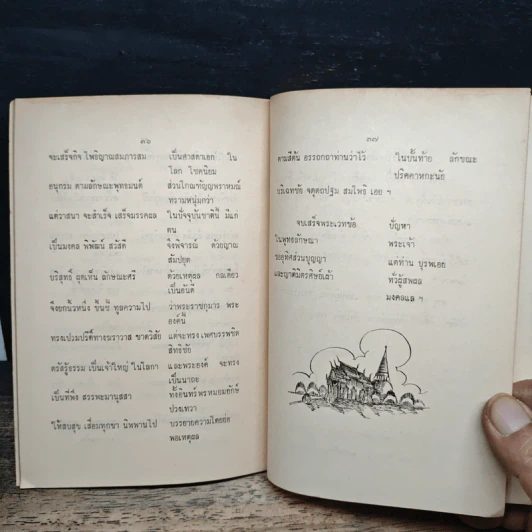 ๓๖
จะเสร็จกิจ โพธิญาณสมภารสม เป็นศาสดาเอก ใน
โลก โชคนิยม
อนุกรม ตามลักษณะพุทธมนต์ ส่วนโกณฑัญญพราหมณ์
ทรามหนุ่มกว่า
แต่ราสนา จะสำเร็จ เสร็จมรรคผล ในปัจจุบันชาตินี้ มีแก่
ตน
เป็นมงคล พิพัฒน์ สวัสดี จึงพิจารณ์ ด้วยญาณ
สัมปยุต
บริสุทธิ์ ผุดเห็น ลักษณะศรี ด้วยเหตุผล กลเดียว
เป็นอันดี
จึงยกนิ้วหนึ่ง ขึ้นชี้ ทูลความไป ว่าพระราชกุมาร พระ
องค์นี้
ทรงเปรมปรีดิ์ทางฆราวาส ขาดวิสัย แต่จะทรง เพศบรรพชิต
สิทธิชัย
ตรัสรู้ธรรม เป็นเจ้าใหญ่ ในโลกา และพระองค์ จะทรง
เป็นนาถะ
เป็นที่พึ่ง สรรพะมานุสสา ทั้งอินทร์ พรหมยมยักษ์
ปวงเทวา
ให้สบสุข เสื่อมทุกขา นิพพานไป บรรยายความโดยย่อ
พอเหตุผล
๓๗
ตามลีดัน อรรถกถาท่านว่าไว้ ในบั้นท้าย ลักขณะ
ปริคาหกะนัย
บริเฉทชัย จตุตถปฐม สมโพธิ เอย ฯ
จบเสร็จพระเวทข้อ ปัญหา
ในพุทธลักษณา พระเจ้า
ขออุทิศส่วนบุญญา แด่ท่าน บูรพเอย
และญาติมิตรศิษย์เล้า ทั่วผู้สพผล
มงคลแล ฯ